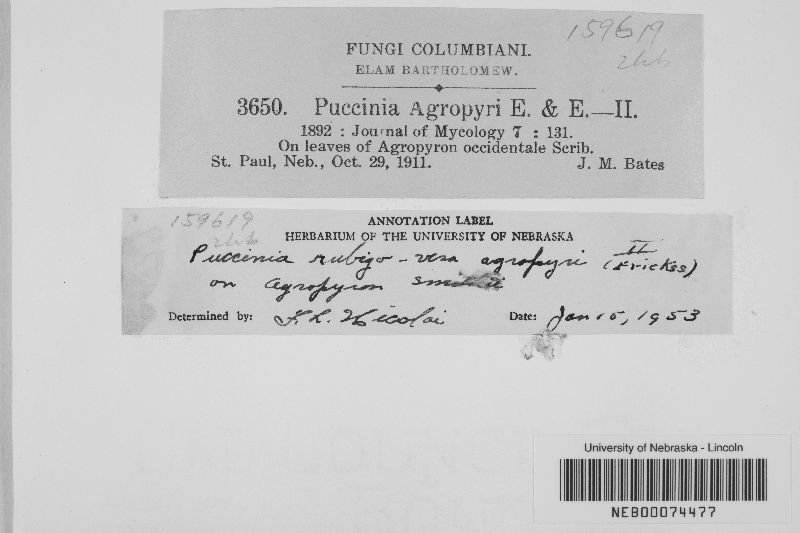 159619
FUNGI COLUMBIANI.
ELAM BARTHOLOMEW.
3650. Puccinia Agropyri E. & E.—II.
1892 : Journal of Mycology 7 : 131.
On leaves of Agropyron occidentale Scrib.
St. Paul, Neb., Oct. 29, 1911. J. M. Bates
159619
ANNOTATION LABEL
HERBARIUM OF THE UNIVERSITY OF NEBRASKA
II
Puccinia rubigo-vera agropyri (Erickss)
on Agropyron smithii
Determined by: F. L. Nicolai Date: Jan 15, 1953
University of Nebraska - Lincoln
NEB00074477